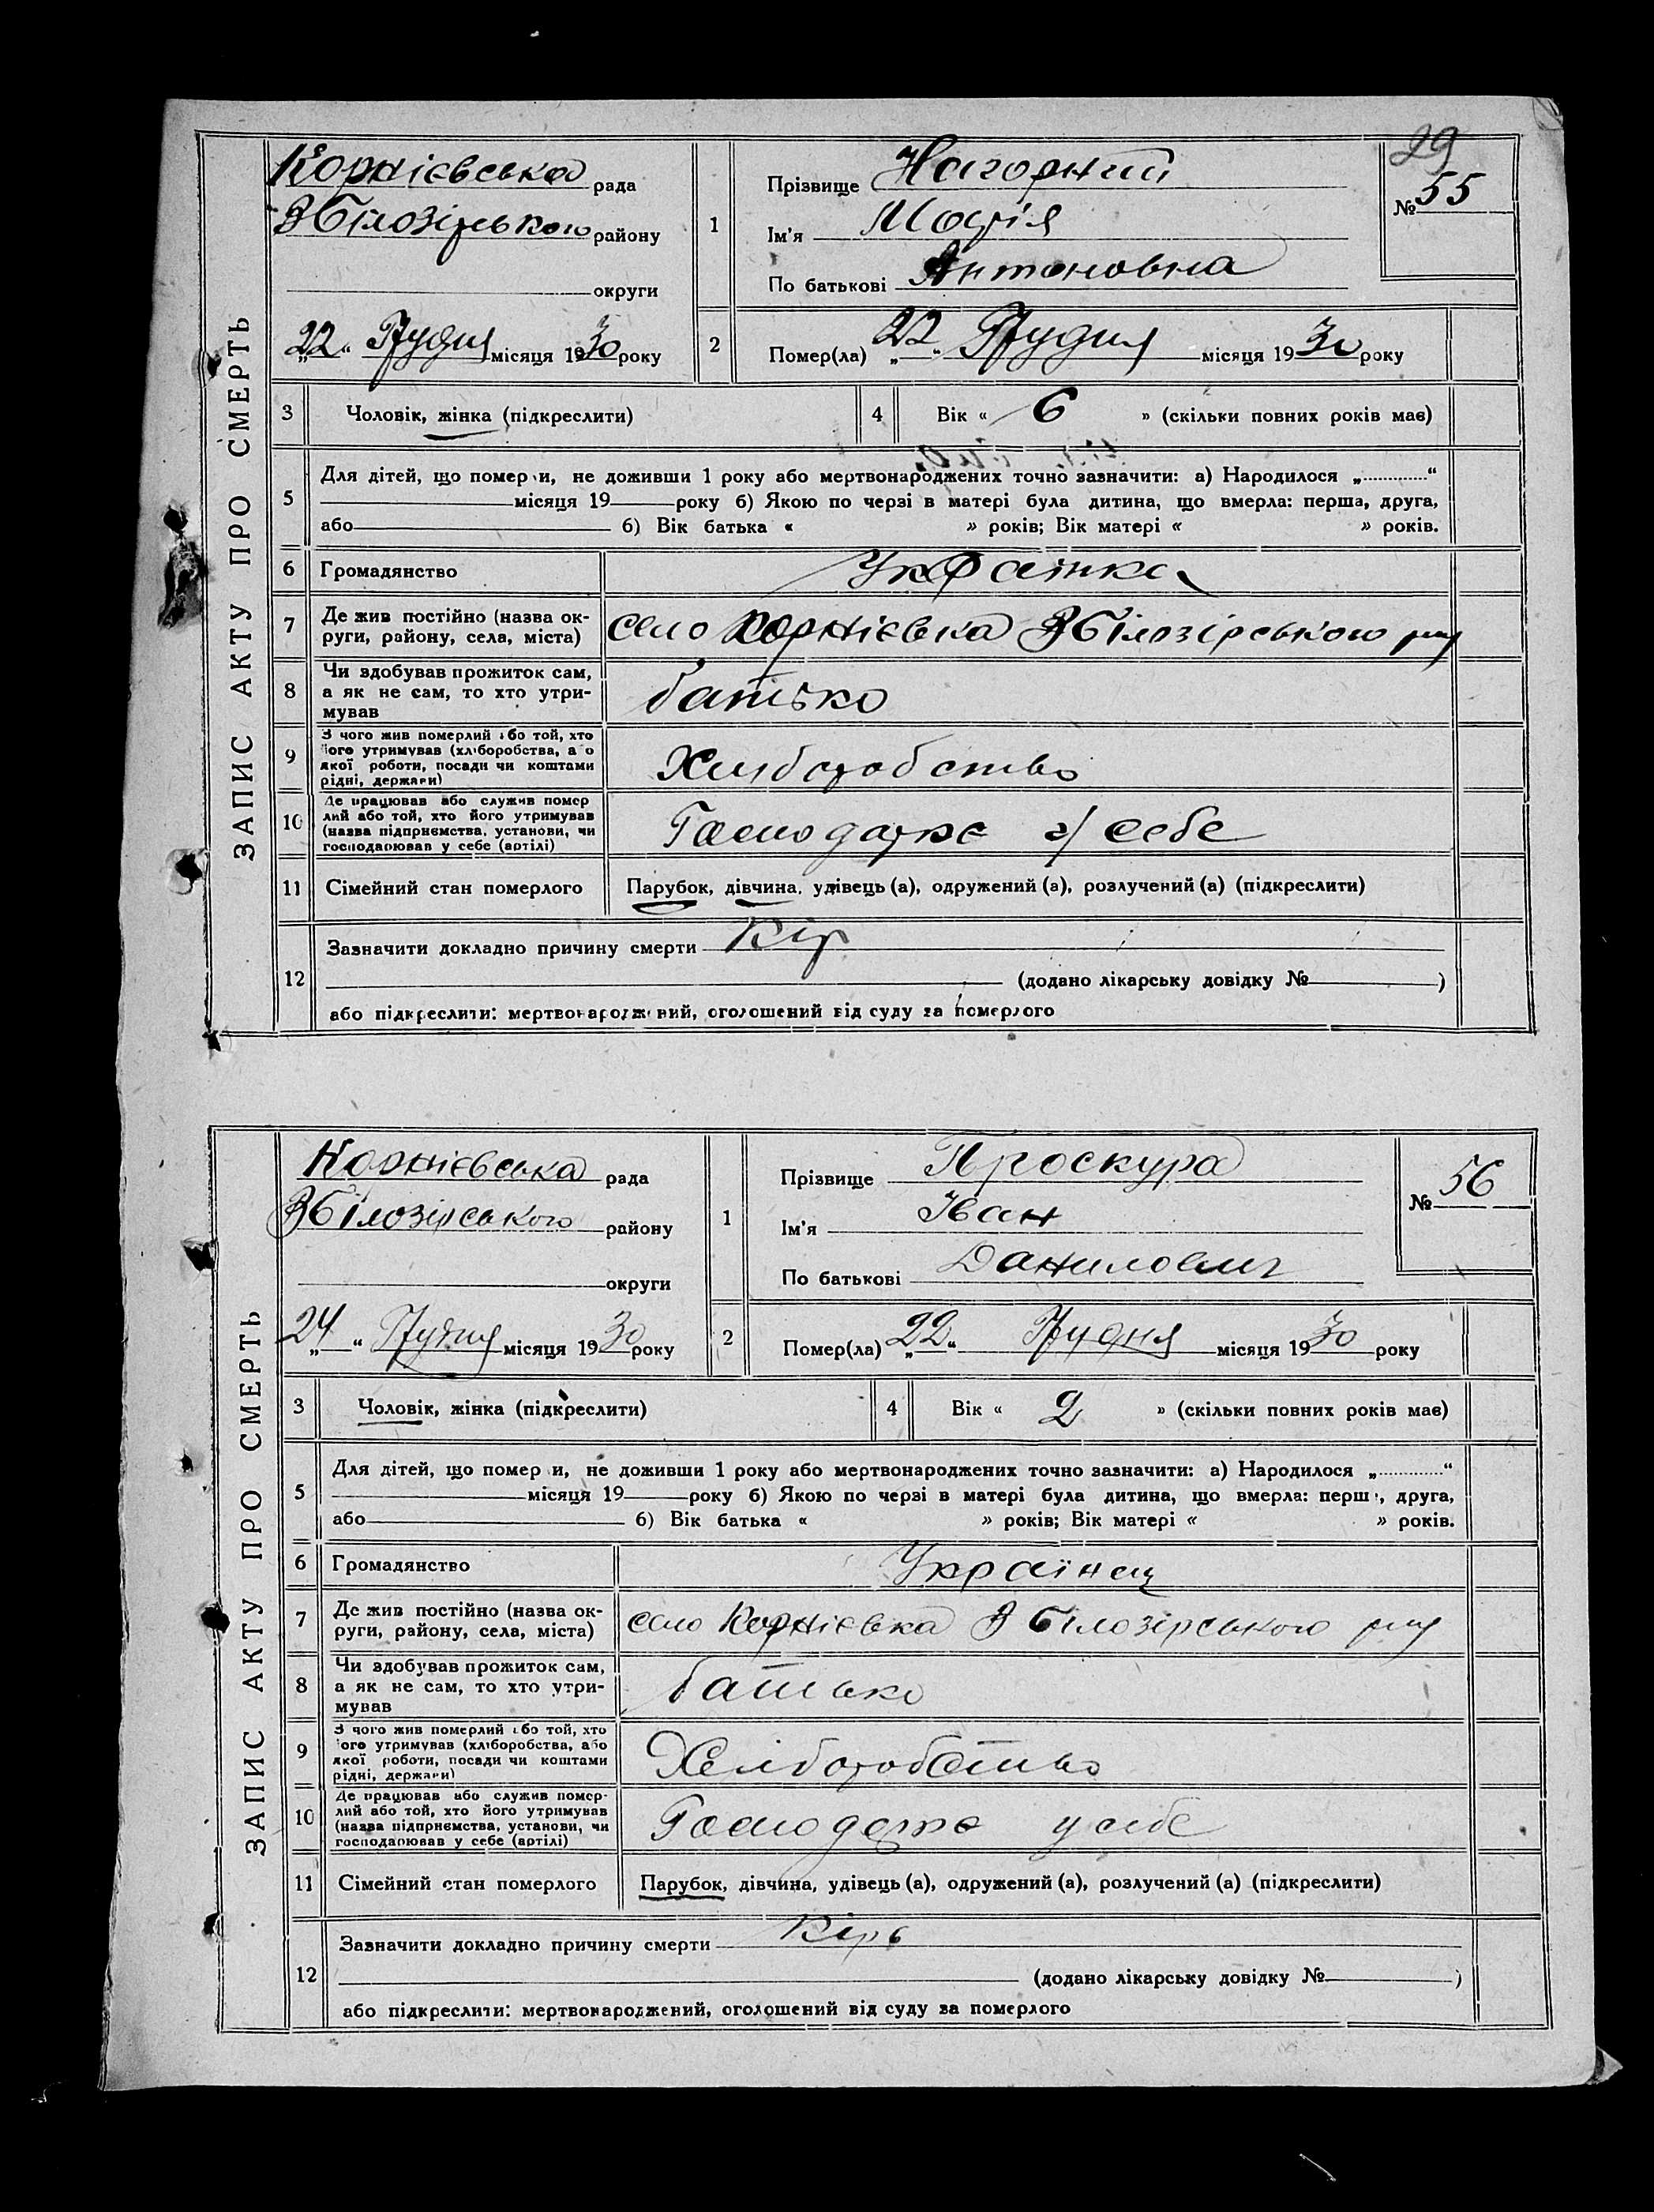 ЗАПИС АКТУ ПРО СМЕРТЬ
29
Корнієвська рада
Збілозірського району
округи
„22“ Грудня місяця 1930 року
1
Прізвище Нагорний
Ім'я Марія
По батькові Антоновна
№ 55
2
Помер(ла) „22“ Грудня місяця 1930 року
3 Чоловік, жінка (підкреслити)
4 Вік « 6 » (скільки повних років має)
5
Для дітей, що помер и, не доживши 1 року або мертвонароджених точно зазначити: а) Народилося „............“
місяця 19 року б) Якою по черзі в матері була дитина, що вмерла: перша, друга,
або б) Вік батька « » років; Вік матері « » років.
6 Громадянство Українка
7
Де жив постійно (назва ок-
руги, району, села, міста)
село Корнієвка Збілозірського
8
Чи здобував прожиток сам,
а як не сам, то хто утри-
мував
батько
9
З чого жив померлий або той, хто
його утримував (хліборобства, або
якої роботи, посади чи коштами
рідні, держави)
Хліборобство
10
Де працював або служив помер
лий або той, хто його утримував
(назва підприємства, установи, чи
господарював у себе (артілі)
Господарює у себе
11 Сімейний стан померлого Парубок, дівчина, удівець (а), одружений (а), розлучений (а) (підкреслити)
12
Зазначити докладно причину смерти Кір
(додано лікарську довідку № )
або підкреслити: мертвонароджений, оголошений від суду за померлого
ЗАПИС АКТУ ПРО СМЕРТЬ
Корнієвська рада
Збілозірського району
округи
„24“ Грудня місяця 1930 року
1
Прізвище Проскура
Ім'я Іван
По батькові Данилович
№ 56
2
Помер(ла) „22“ Грудня місяця 1930 року
3 Чоловік, жінка (підкреслити)
4 Вік « 2 » (скільки повних років має)
5
Для дітей, що помер и, не доживши 1 року або мертвонароджених точно зазначити: а) Народилося „............“
місяця 19 року б) Якою по черзі в матері була дитина, що вмерла: перша, друга,
або б) Вік батька « » років; Вік матері « » років.
6 Громадянство Українец
7
Де жив постійно (назва ок-
руги, району, села, міста)
село Корнієвка Збілозірського
8
Чи здобував прожиток сам,
а як не сам, то хто утри-
мував
батько
9
З чого жив померлий або той, хто
його утримував (хліборобства, або
якої роботи, посади чи коштами
рідні, держави)
Хліборобство
10
Де працював або служив помер-
лий або той, хто його утримував
(назва підприємства, установи, чи
господарював у себе (артілі)
Господарює у себе
11 Сімейний стан померлого Парубок, дівчина, удівець (а), одружений (а), розлучений (а) (підкреслити)
12
Зазначити докладно причину смерти Кірь
(додано лікарську довідку № )
або підкреслити: мертвонароджений, оголошений від суду за померлого